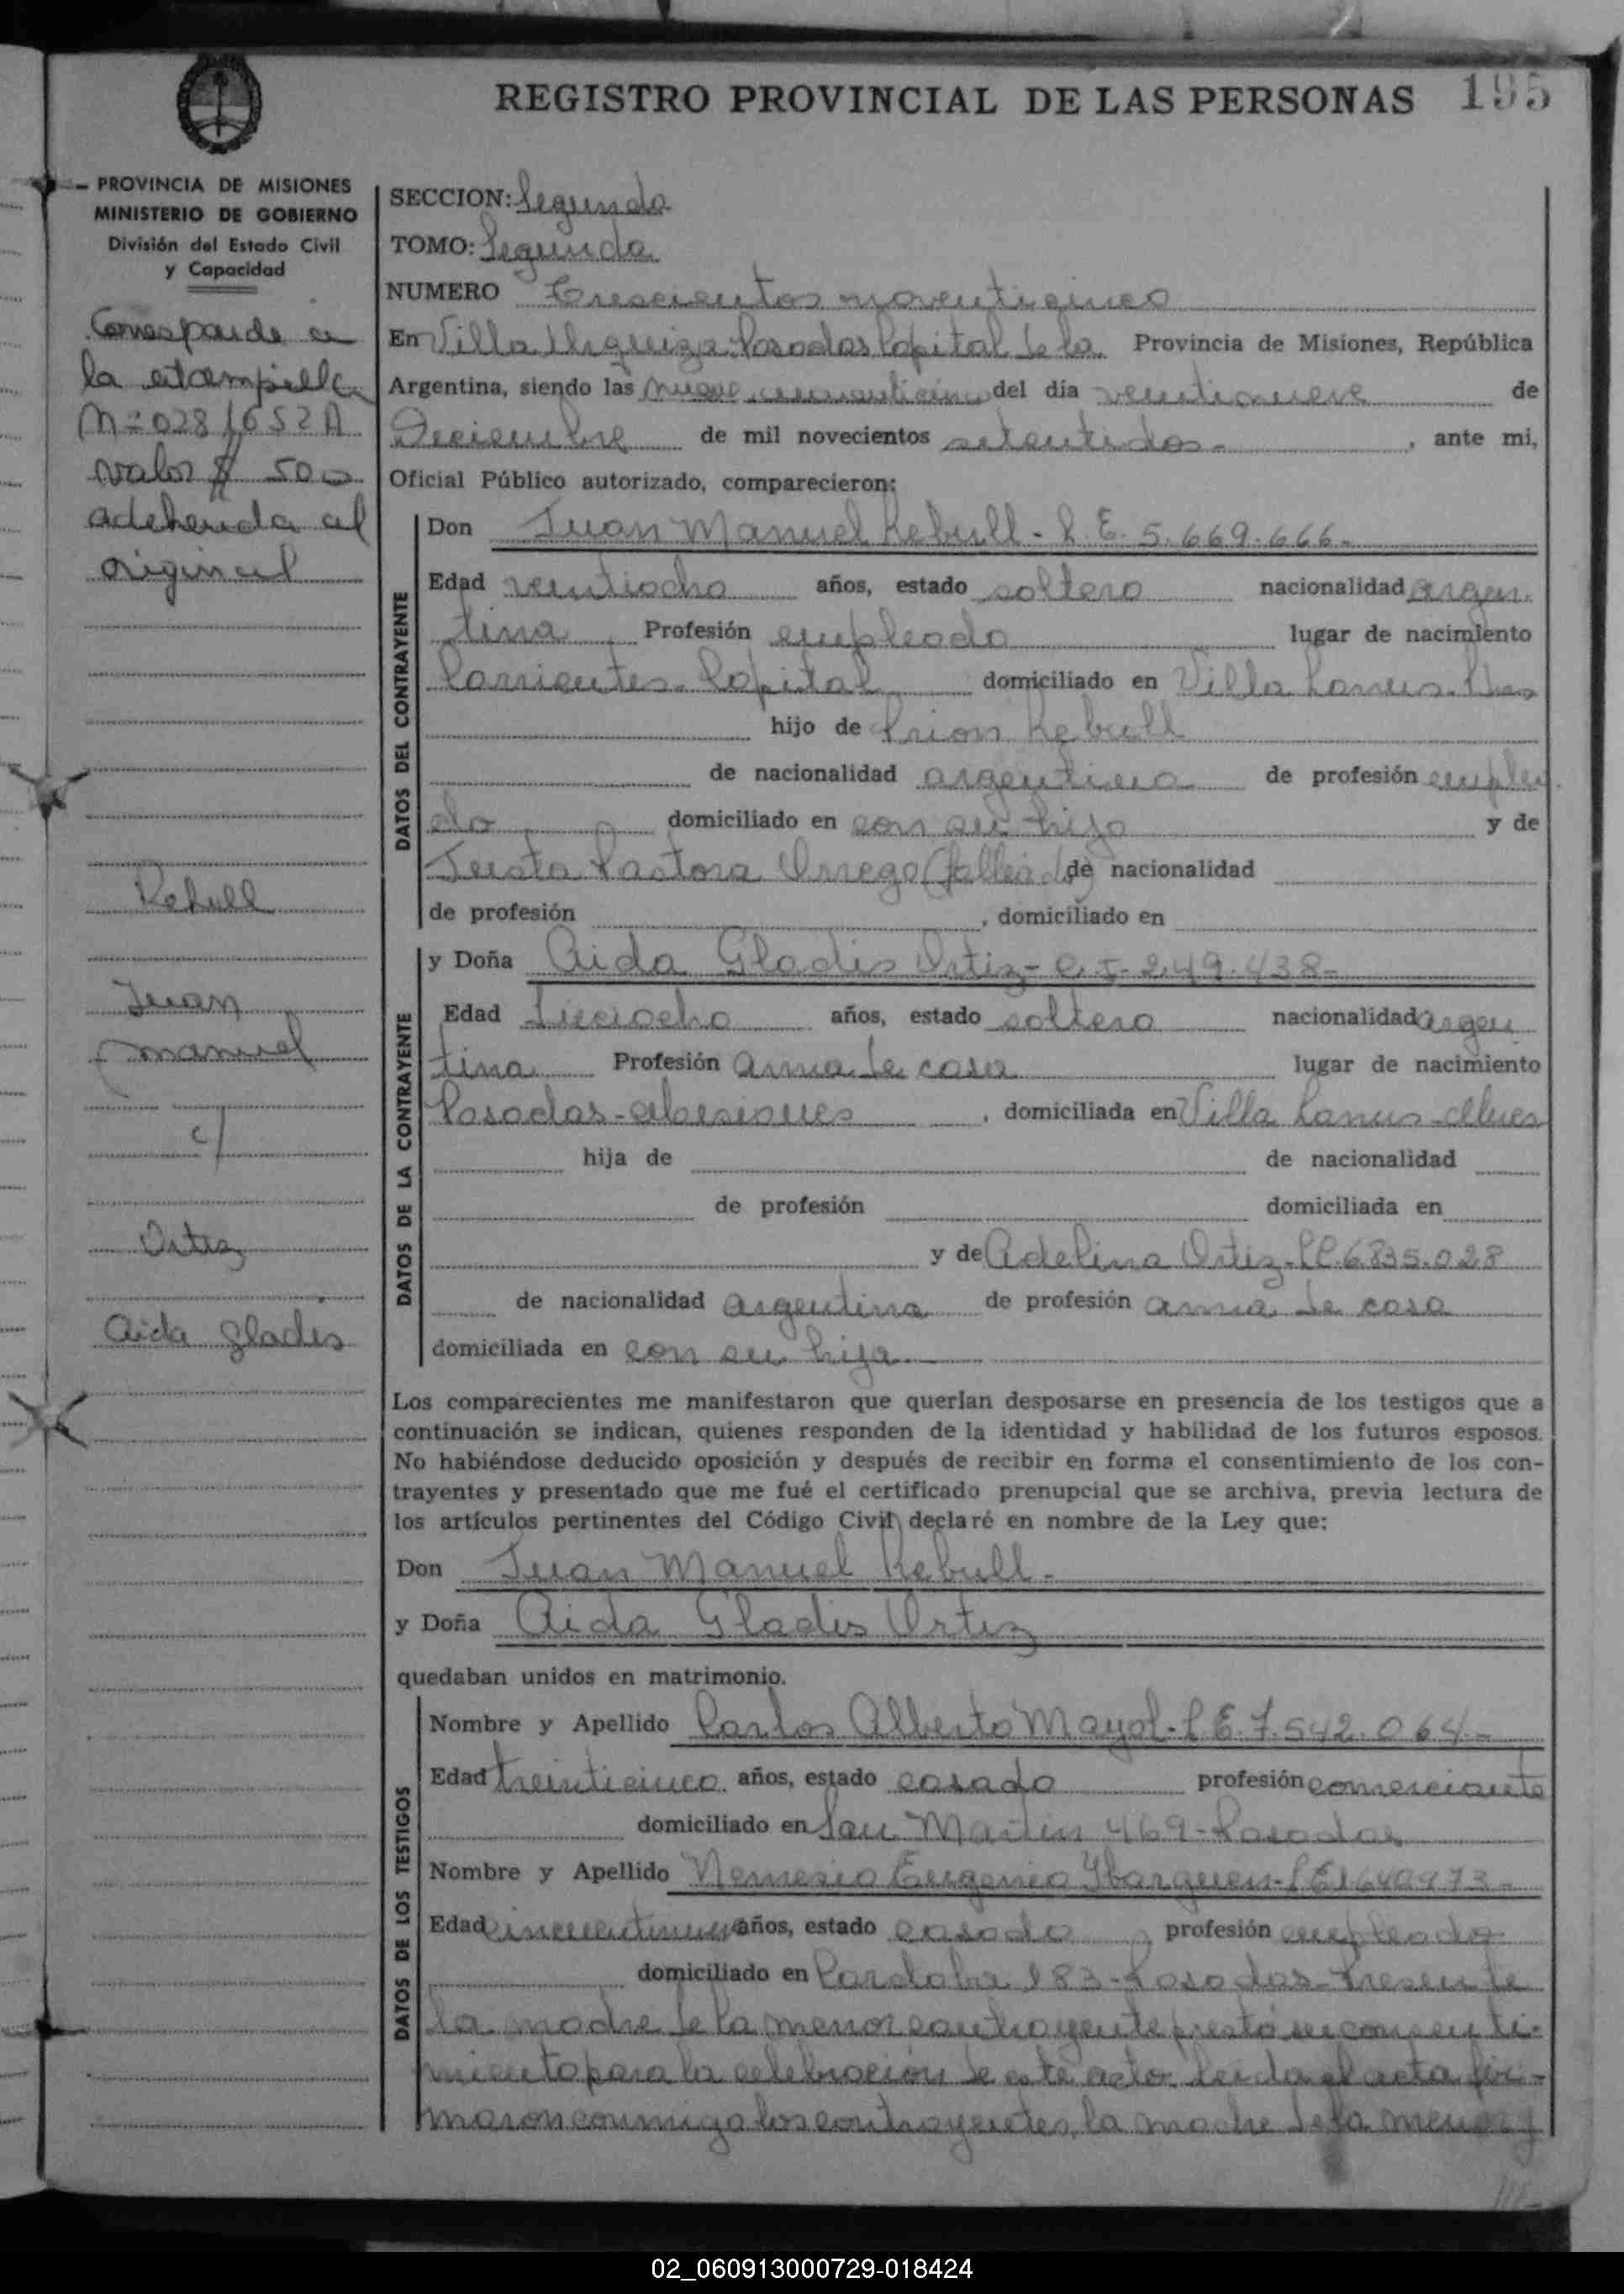 REGISTRO PROVINCIAL DE LAS PERSONAS 195
PROVINCIA DE MISIONES
MINISTERIO DE GOBIERNO
División del Estado Civil
y Capacidad
Corresponde a
la estampilla
valor $ 500
adeherida al
original
Rebull
Juan
Manuel
c/
Ortiz
Aida Gladis
SECCION: Segunda
TOMO: Segunda
NUMERO Trescientos noventicinco
En Villa Urquiza Posadas Capital de la Provincia de Misiones, República
Argentina, siendo las nueve cincuenticinco del día veintinueve de
Diciembre de mil novecientos setentidos - , ante mi,
Oficial Público autorizado, comparecieron:
DATOS DEL CONTRAYENTE
Don Juan Manuel Rebull - L.E. 5.669.666 -
Edad veintiocho años, estado soltero nacionalidad argen
tina Profesión empleado lugar de nacimiento
Corrientes - Capital domiciliado en Villa Lanus -
hijo de Rebull
de nacionalidad argentino de profesión emplea
do domiciliado en con su hijo y de
Justa Pastora Orrego (fallecida) de nacionalidad
de profesión , domiciliado en
DATOS DE LA CONTRAYENTE
y Doña Aida Gladis Ortiz - C.I. 249.438 -
Edad Dieciocho años, estado soltera nacionalidad argen
tina Profesión ama de casa lugar de nacimiento
Posadas - Misiones , domiciliada en Villa Lanus -
hija de de nacionalidad
de profesión domiciliada en
y de Adelina Ortiz - L.C. 6.835.028
de nacionalidad argentina de profesión ama de casa
domiciliada en con su hija
Los comparecientes me manifestaron que querían desposarse en presencia de los testigos que a
continuación se indican, quienes responden de la identidad y habilidad de los futuros esposos.
No habiéndose deducido oposición y después de recibir en forma el consentimiento de los con-
trayentes y presentado que me fué el certificado prenupcial que se archiva, previa lectura de
los artículos pertinentes del Código Civil declaré en nombre de la Ley que:
Don Juan Manuel Rebull -
y Doña Aida Gladis Ortiz
quedaban unidos en matrimonio.
DATOS DE LOS TESTIGOS
Nombre y Apellido Carlos Alberto Mayol - L.E. 7.542.064 -
Edad treinticinco años, estado casado profesión comerciante
domiciliado en San Martin 469 - Posadas
Nombre y Apellido Nemesio Eugenio Ybarguen - L.E.
Edad años, estado casado profesión empleado
domiciliado en Cordoba 183 - Posadas - Presente
la madre de la menor contrayente prestó su consenti-
miento para la celebración de este acto. Leida el acta fir-
maron conmigo los contrayentes, la madre de la menor y
02_060913000729-018424